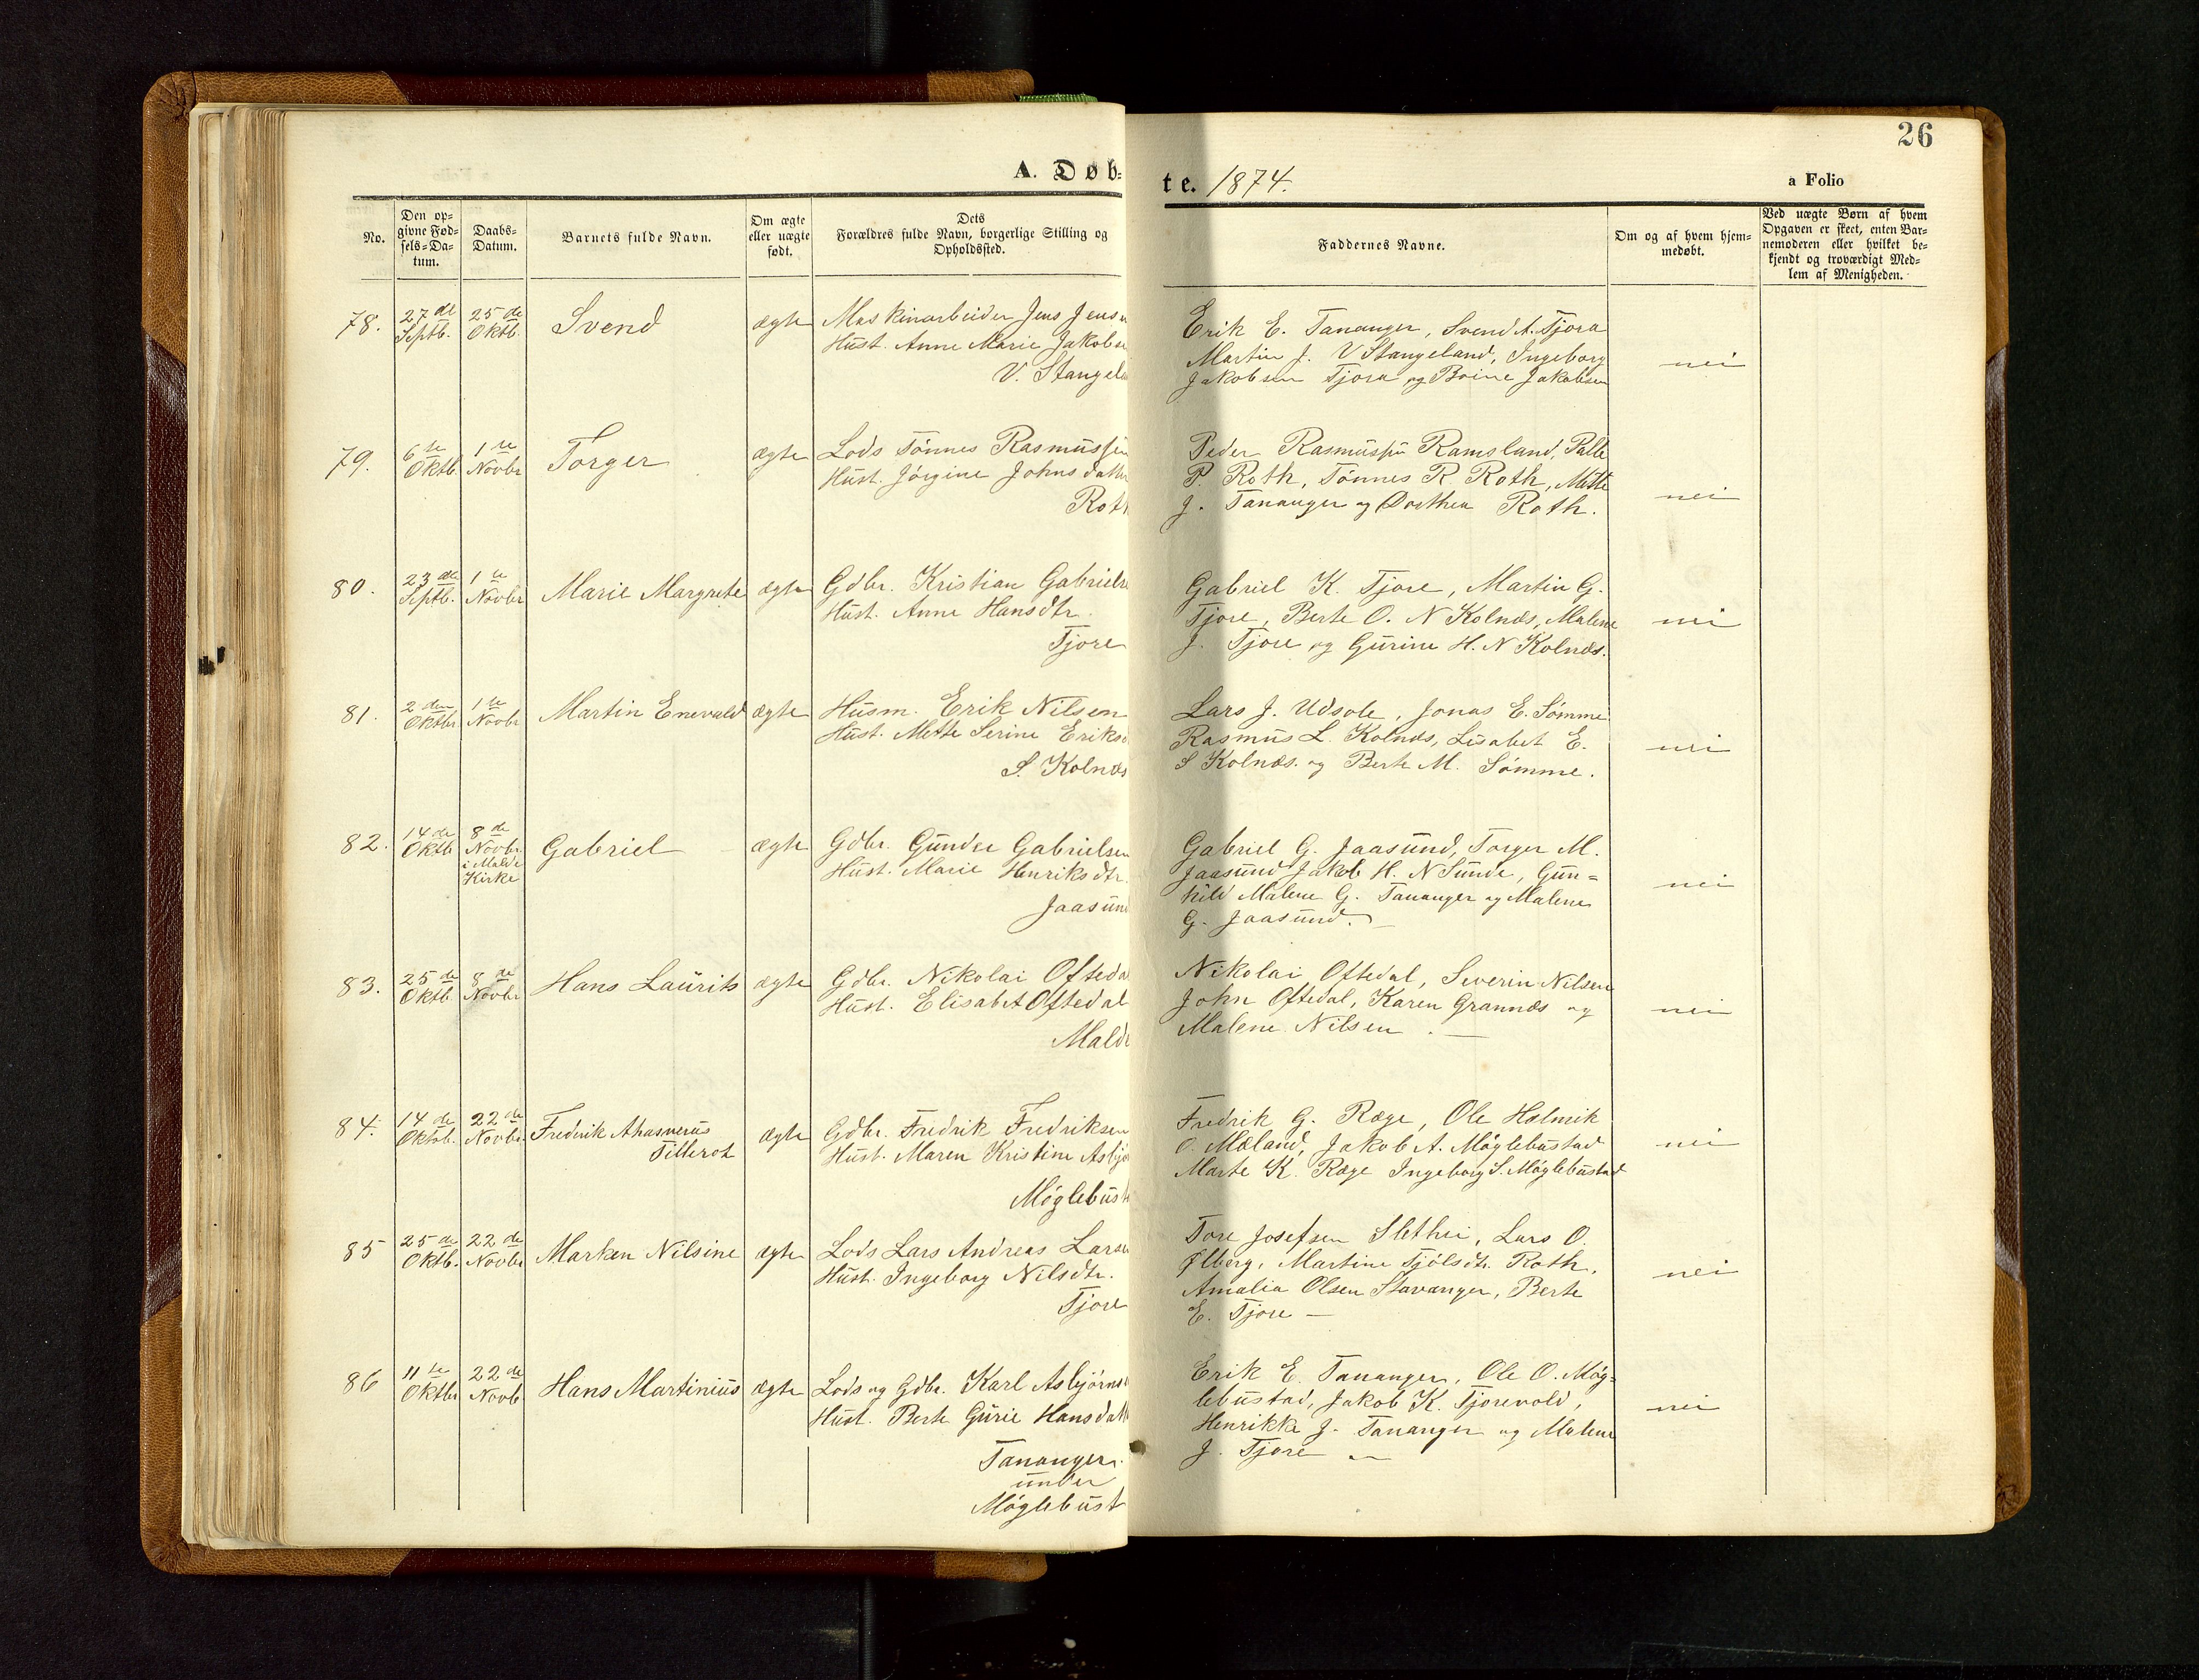 26
A. Døb=
te. 1874.
a Folio
No.
Den op=
givne Fød=
sels=Da=
tum.
Daabs=
Datum.
Barnets fulde Navn.
Om ægte
eller uægte
født.
Dets
Forældres fulde Navn, borgerlige Stilling og
Opholdssted.
Faddernes Navne.
Om og af hvem hjem=
medøbt.
Ved uægte Børn af hvem
Opgaven er skeet, enten Bar=
nemoderen eller hvilket be=
kjendt og troværdigt Med=
lem af Menigheden.
78.
27de
Septb.
25de
Oktb.
Svend
ægte
Maskinarbeider Jens Jens
Hust. Anne Marie Jakobs
V. Stangel
Erik E. Tananger, Svend A. Tjora
Martin J. V Stangeland, Ingeborg
Jakobsen Tjora og Jakobsen
nei
79.
6te
Oktb.
1ste
Novbr
Torger
ægte
Lods Tønnes Rasmussen
Hust. Jørgine Johnsdatter
Roth
Peder Rasmussen Ramsland, Palle
P. Roth, Tønnes R Roth, Mette
J. Tananger og Dorthea Roth.
nei
80.
23de
Septb.
1ste
Novbr
Marie Margrete
ægte
Gdbr. Kristian Gabriels
Hust. Anne Hansdtr.
Tjore
Gabriel K. Tjore, Martin G.
Tjore, Berte O. N Kolnæs, Malene
J. Tjore og Gurine H. N Kolnæs.
nei
81.
2den
Oktbr
1ste
Novbr
Martin Enevald
ægte
Husm. Erik Nilsen
Hust. Mette Serine Eriks
S. Kolnæs
Lars J. Udsole, Jonas E. Sømme
Rasmus L. Kolnæs, Lisabet E.
S Kolnæs. og Berte M. Sømme.
nei
82.
14de
Oktb
8de
Novbr.
i Malde
Kirke
Gabriel
ægte
Gdbr. Gunder Gabrielsen
Hust. Marie Henriksdtr.
Jaasun
Gabriel G. Jaasund, Torger M.
Jaasund Jakob H. N Sunde, Gun=
hild Malene G. Tananger og Malene
G. Jaasund.
nei
83.
25de
Oktb.
8de
Novbr
Hans Laurits
ægte
Gdbr. Nikolai Ofteda
Hust. Elisabet Oftedal
Malde
Nikolai Oftedal, Severin Nilsen
John Oftedal, Karen Grannæs og
Malene Nilsen.
nei
84.
14de
Oktob.
22de
Novbr.
Fredrik Ahasverus
Tillerot
ægte
Gdbr. Fredrik Fredriksen
Hust. Maren Kristine Asbjø
Møglebust
Fredrik G. Ræge, Ole Halmik
O. Mæland, Jakob A. Møglebustad
Marte K. Ræge Ingeborg S. Møglebustad
nei
85
25de
Oktb.
22de
Novbr
Marken Nilsine
ægte
Lods Lars Andreas Larse
Hust. Ingeborg Nilsdtr.
Tjore
Tore Josefsen Slethei, Lars O.
Ølberg, Martine Tjølsdtr. Roth.
Amalia Olsen Stavanger, Berte
E. Tjore —
nei
86
11te
Oktbr
22de
Novb
Hans Martinius
ægte
Lods og Gdbr. Karl Asbjørns
Hust. Berte Gurie Hansdatt
Tananger
under
Møglebust
Erik E. Tananger, Ole O. Møg=
lebustad, Jakob K. Tjorevold,
Henrikke J. Tananger og Malene
J. Tjore
nei